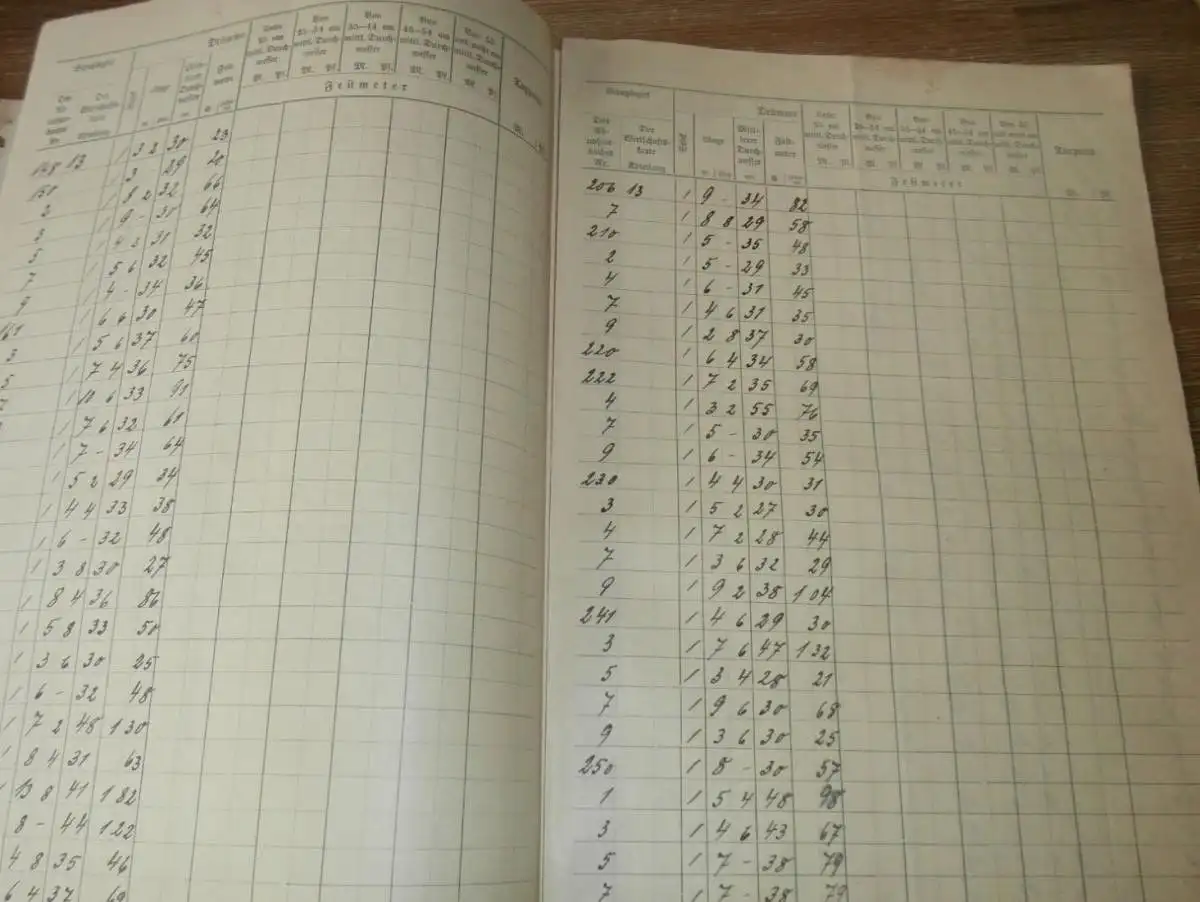 Drümmer
Unter 25 cm mittl. Durchmesser
Von 25—34 cm mittl. Durchmesser
Von 35—44 cm mittl. Durchmesser
Von 45—54 cm mittl. Durchmesser
M. Pl. M. Pl. M. Pl. M. Pl. M. Pl.
Festmeter
148 13 1 3 2 30 23
150 1 3 - 29 20
2 1 8 2 32 66
3 1 9 - 30 64
5 1 4 2 31 32
7 1 5 6 32 45
9 1 4 - 34 36
161 1 6 6 30 47
3 1 5 6 37 60
5 1 7 4 36 75
1 10 6 33 91
1 7 6 32 61
1 7 - 34 64
1 5 2 29 34
1 4 4 33 38
1 6 - 32 48
1 3 8 30 27
1 8 4 36 86
1 5 8 33 50
1 3 6 30 25
1 6 - 32 48
1 7 2 48 130
1 8 4 31 63
1 13 8 41 182
8 - 44 122
4 8 35 46
6 4 37 69
Drümmer
Der Wirtschaftskarte
Länge
Mittlerer Durchmesser
Festmeter
Unter 25 cm mittl. Durchmesser
Von 25—34 cm mittl. Durchmesser
Von 35—44 cm mittl. Durchmesser
Von 45—54 cm mittl. Durchmesser
M. Pl. M. Pl. M. Pl. M. Pl. M. Pl.
Festmeter
206 13 1 9 - 34 82
7 1 8 8 29 58
210 1 5 - 35 48
2 1 5 - 29 33
4 1 6 - 31 45
7 1 4 6 31 35
9 1 2 8 37 30
220 1 6 4 34 58
222 1 7 2 35 69
4 1 3 2 55 76
7 1 5 - 30 35
9 1 6 - 34 54
230 1 4 4 30 31
3 1 5 2 27 30
4 1 7 2 28 44
7 1 3 6 32 29
9 1 9 2 38 104
241 1 4 6 29 30
3 1 7 6 47 132
5 1 3 4 28 21
7 1 9 6 30 68
9 1 3 6 30 25
250 1 8 - 30 57
1 1 5 4 48 98
3 1 4 6 43 67
5 1 7 - 38 79
7 1 7 - 38 79